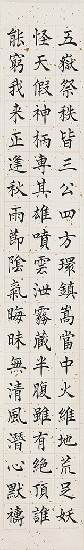 五嶽祭秩皆三公四方環鎮嵩當中火維地荒足妖
怪天假神柄專其雄噴雲泄霧藏半腹雖有絕頂誰
能窮我來正逢秋雨節陰氣晦昧無清風潛心默禱